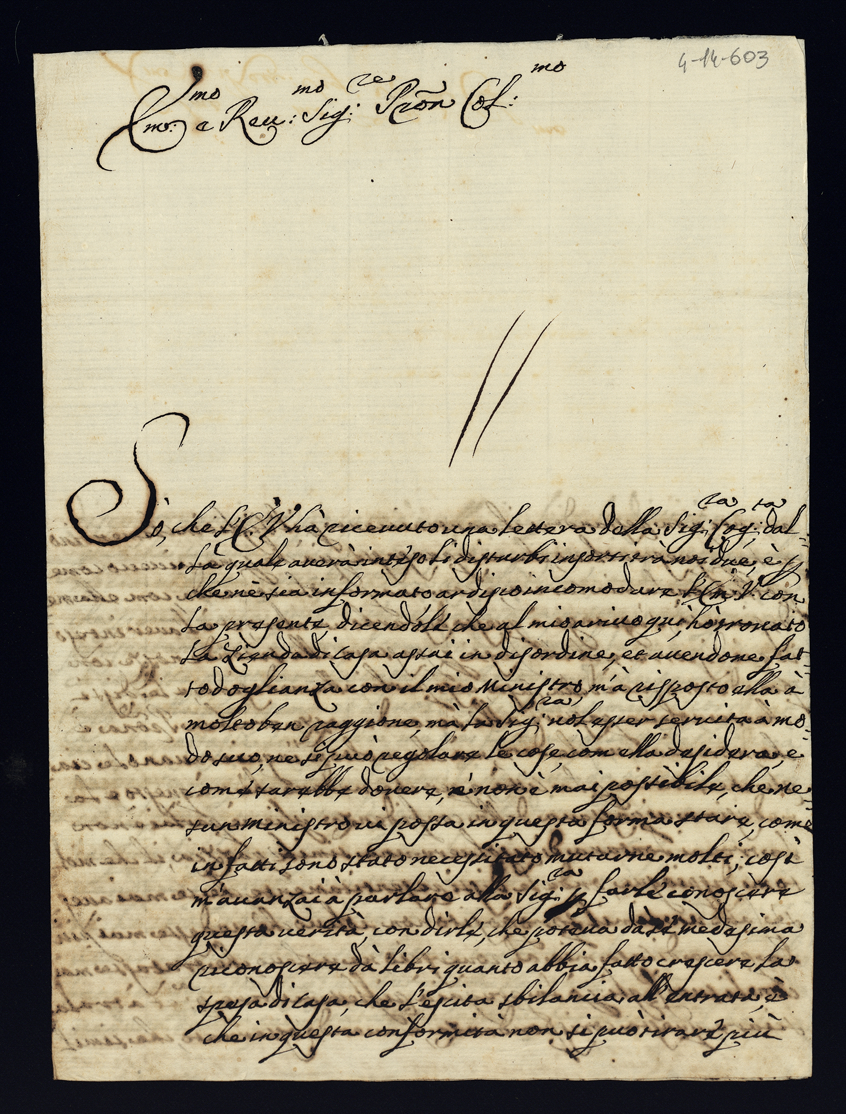 4-14-603
Em:mo e Reu:mo Sig:re Prōn Col:mo
Sò, che l'E. V. hà riceuuto una lettera della Sig:ra Cog:ta dal-
la quale auerà inteso li disturbi insorti trà noi due, è p
che nè sia informato ardisco incomodare l'Em: V. con
la presente dicendoli che al mio ariuo quì hò trouato
la Azienda di Casa assai in disordine, et auendone fat-
to doglianza con il mio Ministro m'à risposto ella à
molto ben raggione, mà la Sig:ra uol esser seruita à mo-
do suo, ne si può regolare le cose com ella desidera, e
come sarebbe douere, e non è mai possibile, che ne-
sun Ministro ui possa in questa forma stare, come
in fatti sono stato necessitato mutarne molti, così
m'auanzai à parlare alla Sig:ra p farle conoscere
questa uerità con dirle, che poteua da se medesima
riconoscere dà libri quanto abbia fatto crescere la
spesa di Casa, che l'escita sbilancia all'entrata, è
che in questa conformità non si può tirare più